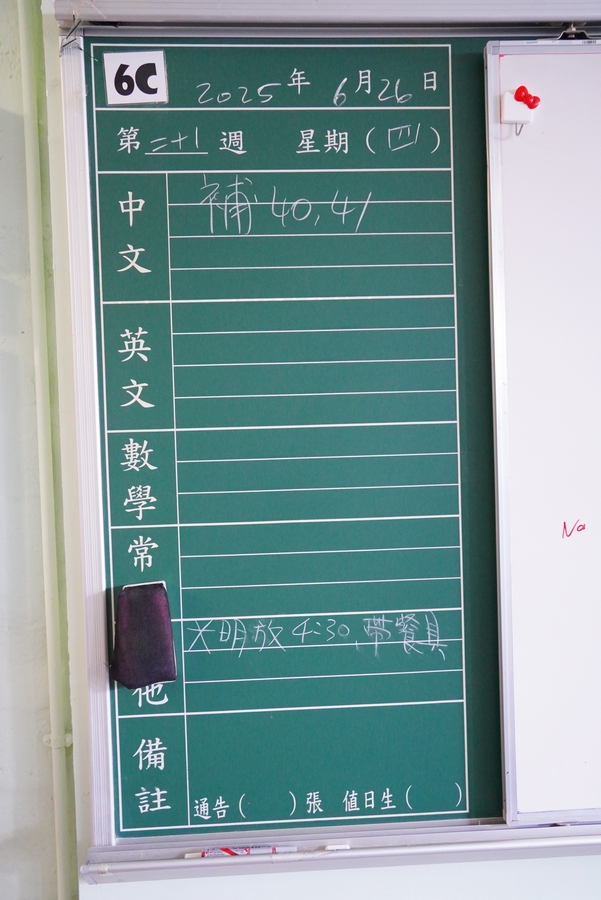 6C 2025年 6月26日
第 二十1 週 星期(四)
中文 補 40, 41
英文
數學
常
他 大明放 4:30, 帶餐具
備註
通告( )張 值日生( )
No